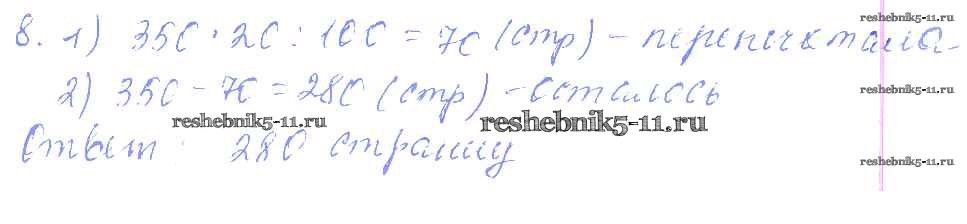 8. 1) 350 · 20 : 100 = 70 (стр) - перепечатала
2) 350 - 70 = 280 (стр) - осталось
Ответ: 280 страниц
reshebnik5-11.ru
reshebnik5-11.ru
reshebnik5-11.ru
reshebnik5-11.ru
reshebnik5-11.ru